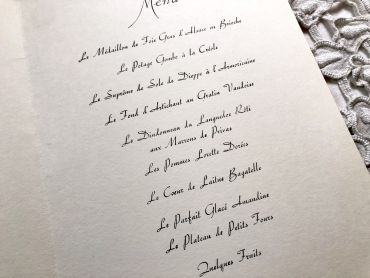 Menu
Le Médaillon de Foie Gras d'Alsace en Brioche
Le Potage Gombo à la Créole
Le Suprême de Sole de Dieppe à l'Armoricaine
Le Fond d'Artichaut au Gratin Vaudoise
Le Dindonneau du Languedoc Rôti
aux Marrons de Privas
Les Pommes Lorette Dorées
Le Cœur de Laitue Bagatelle
Le Parfait Glacé Amandine
Le Plateau de Petits Fours
Quelques Fruits